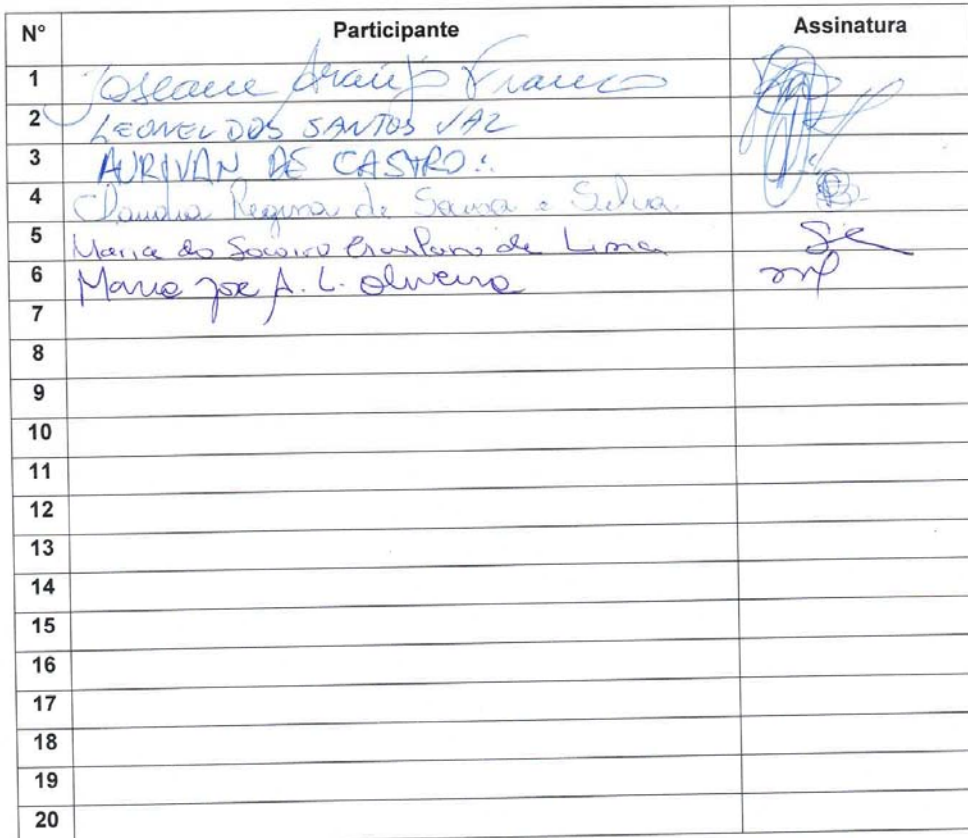 N° Participante Assinatura
1 Joseane Araújo Franco
2 LEONEL DOS SANTOS VAZ
3 AURIVAN DE CASTRO
4 Claudia Regina de Sousa e Silva
5 Maria do Socorro de Lima
6 Maria José A. L. Oliveira
7
8
9
10
11
12
13
14
15
16
17
18
19
20